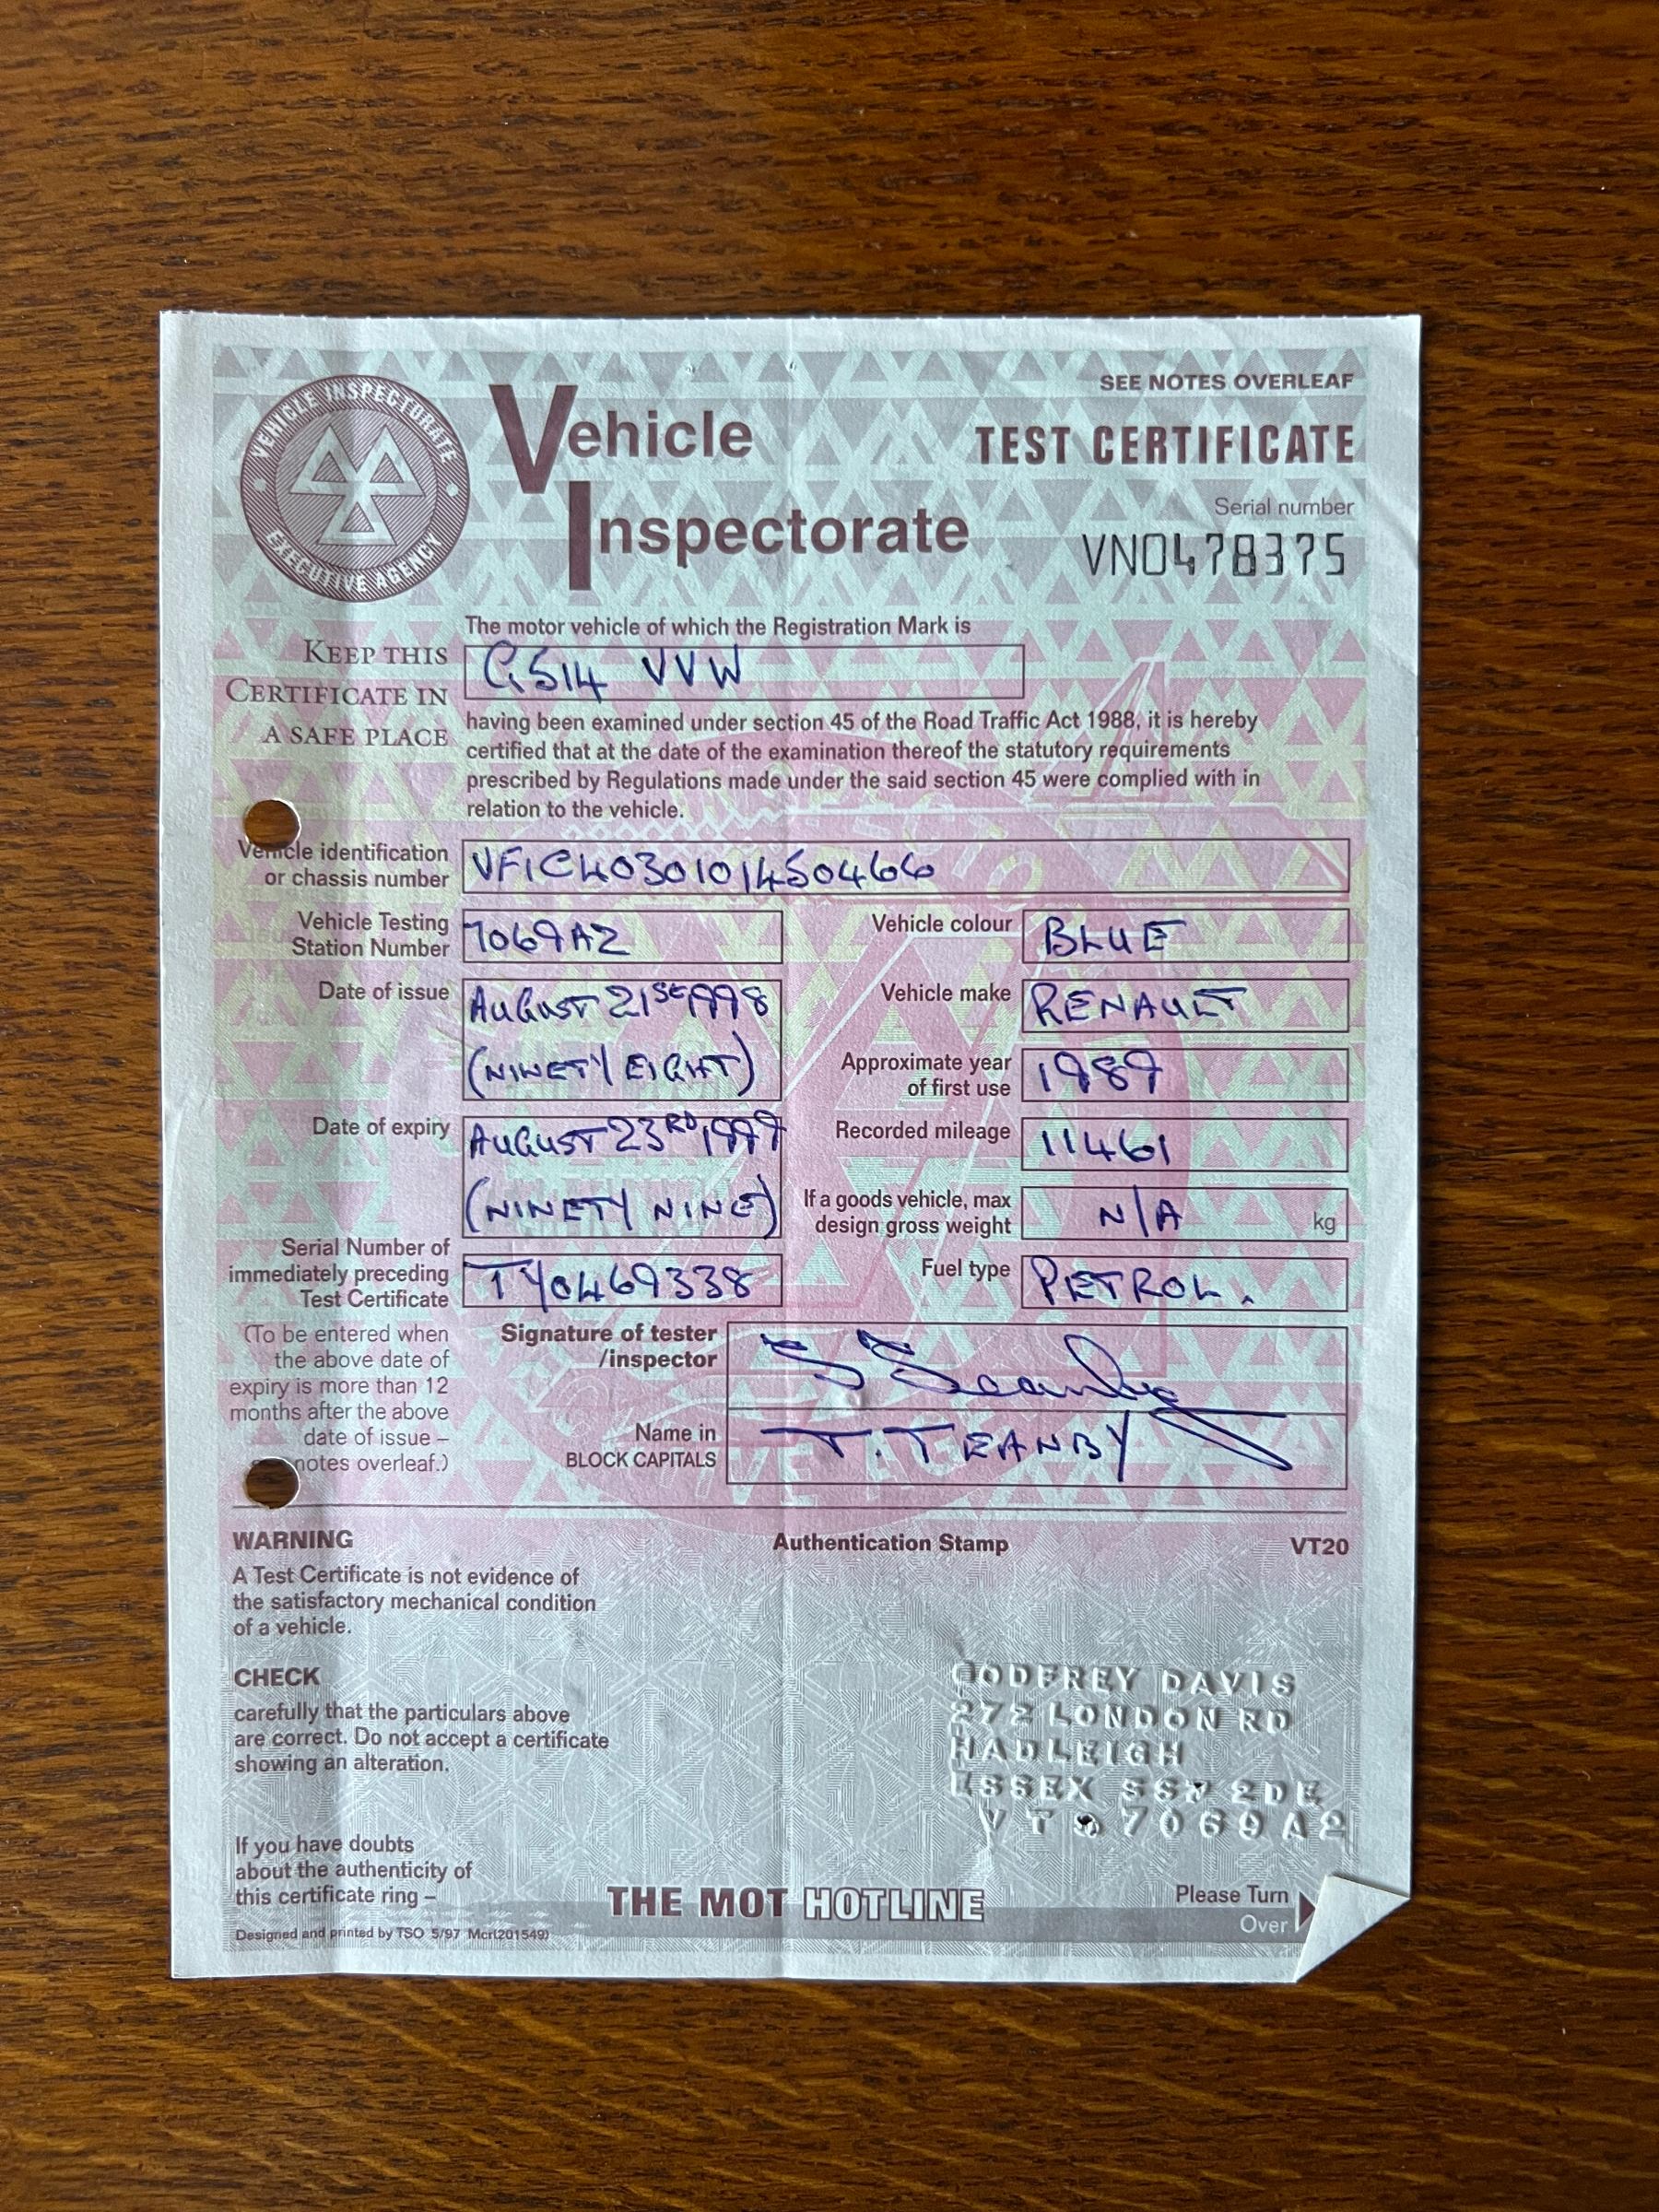 VEHICLE INSPECTORATE
EXECUTIVE AGENCY
Vehicle
Inspectorate
SEE NOTES OVERLEAF
TEST CERTIFICATE
Serial number
VN0478375
KEEP THIS
CERTIFICATE IN
A SAFE PLACE
The motor vehicle of which the Registration Mark is
G514 VVW
having been examined under section 45 of the Road Traffic Act 1988, it is hereby
certified that at the date of the examination thereof the statutory requirements
prescribed by Regulations made under the said section 45 were complied with in
relation to the vehicle.
Vehicle identification
or chassis number
VF1C4030101450466
Vehicle Testing
Station Number
7069A2
Vehicle colour
BLUE
Date of issue
AUGUST 21ST 1998
(NINETY EIGHT)
Vehicle make
RENAULT
Approximate year
of first use
1989
Date of expiry
AUGUST 23RD 1999
(NINETY NINE)
Recorded mileage
11461
If a goods vehicle, max
design gross weight
N/A
kg
Serial Number of
immediately preceding
Test Certificate
TY0469338
Fuel type
PETROL.
(To be entered when
the above date of
expiry is more than 12
months after the above
date of issue –
notes overleaf.)
Signature of tester
/inspector
Name in
BLOCK CAPITALS
T. TEANBY
WARNING
A Test Certificate is not evidence of
the satisfactory mechanical condition
of a vehicle.
Authentication Stamp
VT20
CHECK
carefully that the particulars above
are correct. Do not accept a certificate
showing an alteration.
GODFREY DAVIS
272 LONDON RD
HADLEIGH
ESSEX SS7 2DE
VTS 7069A2
If you have doubts
about the authenticity of
this certificate ring –
THE MOT HOTLINE
Please Turn
Over
Designed and printed by TSO 5/97 Mcr(201549)